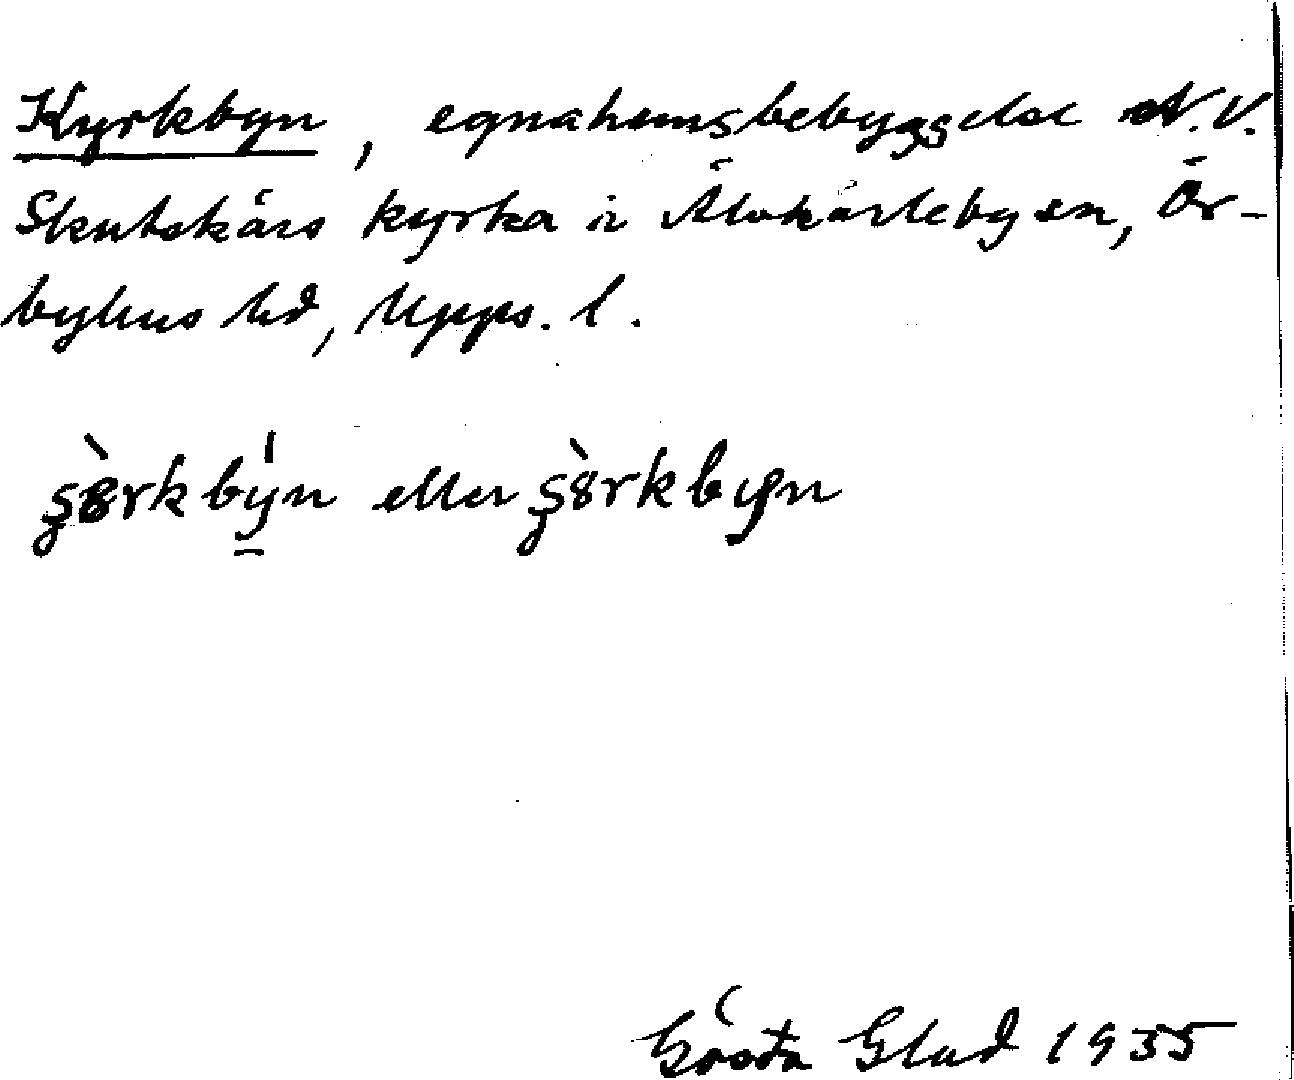 Kyrkbyn, egnahemsbebyggelse N.V.
Skutskärs kyrka i Älvkarleby sn, Ör-
byhus hd, Upps. l.
eller
Gösta Glad 1935